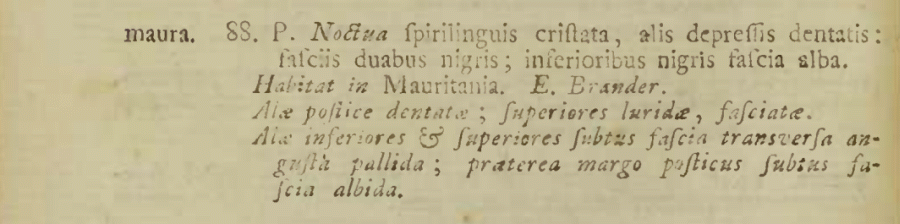 maura. 88. P. Noctua ſpirilinguis criſtata, alis depreſſis dentatis:
faſciis duabus nigris; inferioribus nigris faſcia alba.
Habitat in Mauritania. E. Brander.
Alæ poſtice dentatæ; ſuperiores luridæ, faſciatæ.
Alæ inferiores & ſuperiores ſubtus faſcia transverſa an-
guſtà pallida; præterea margo poſticus ſubtus fa-
ſcia albida.